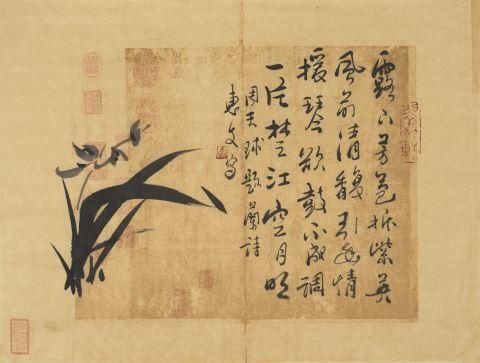 露下芳苞拆紫英
風前清馥引幽情
援琴欲鼓不成調
一片楚江空月明
周天球題蘭詩
惠文寫